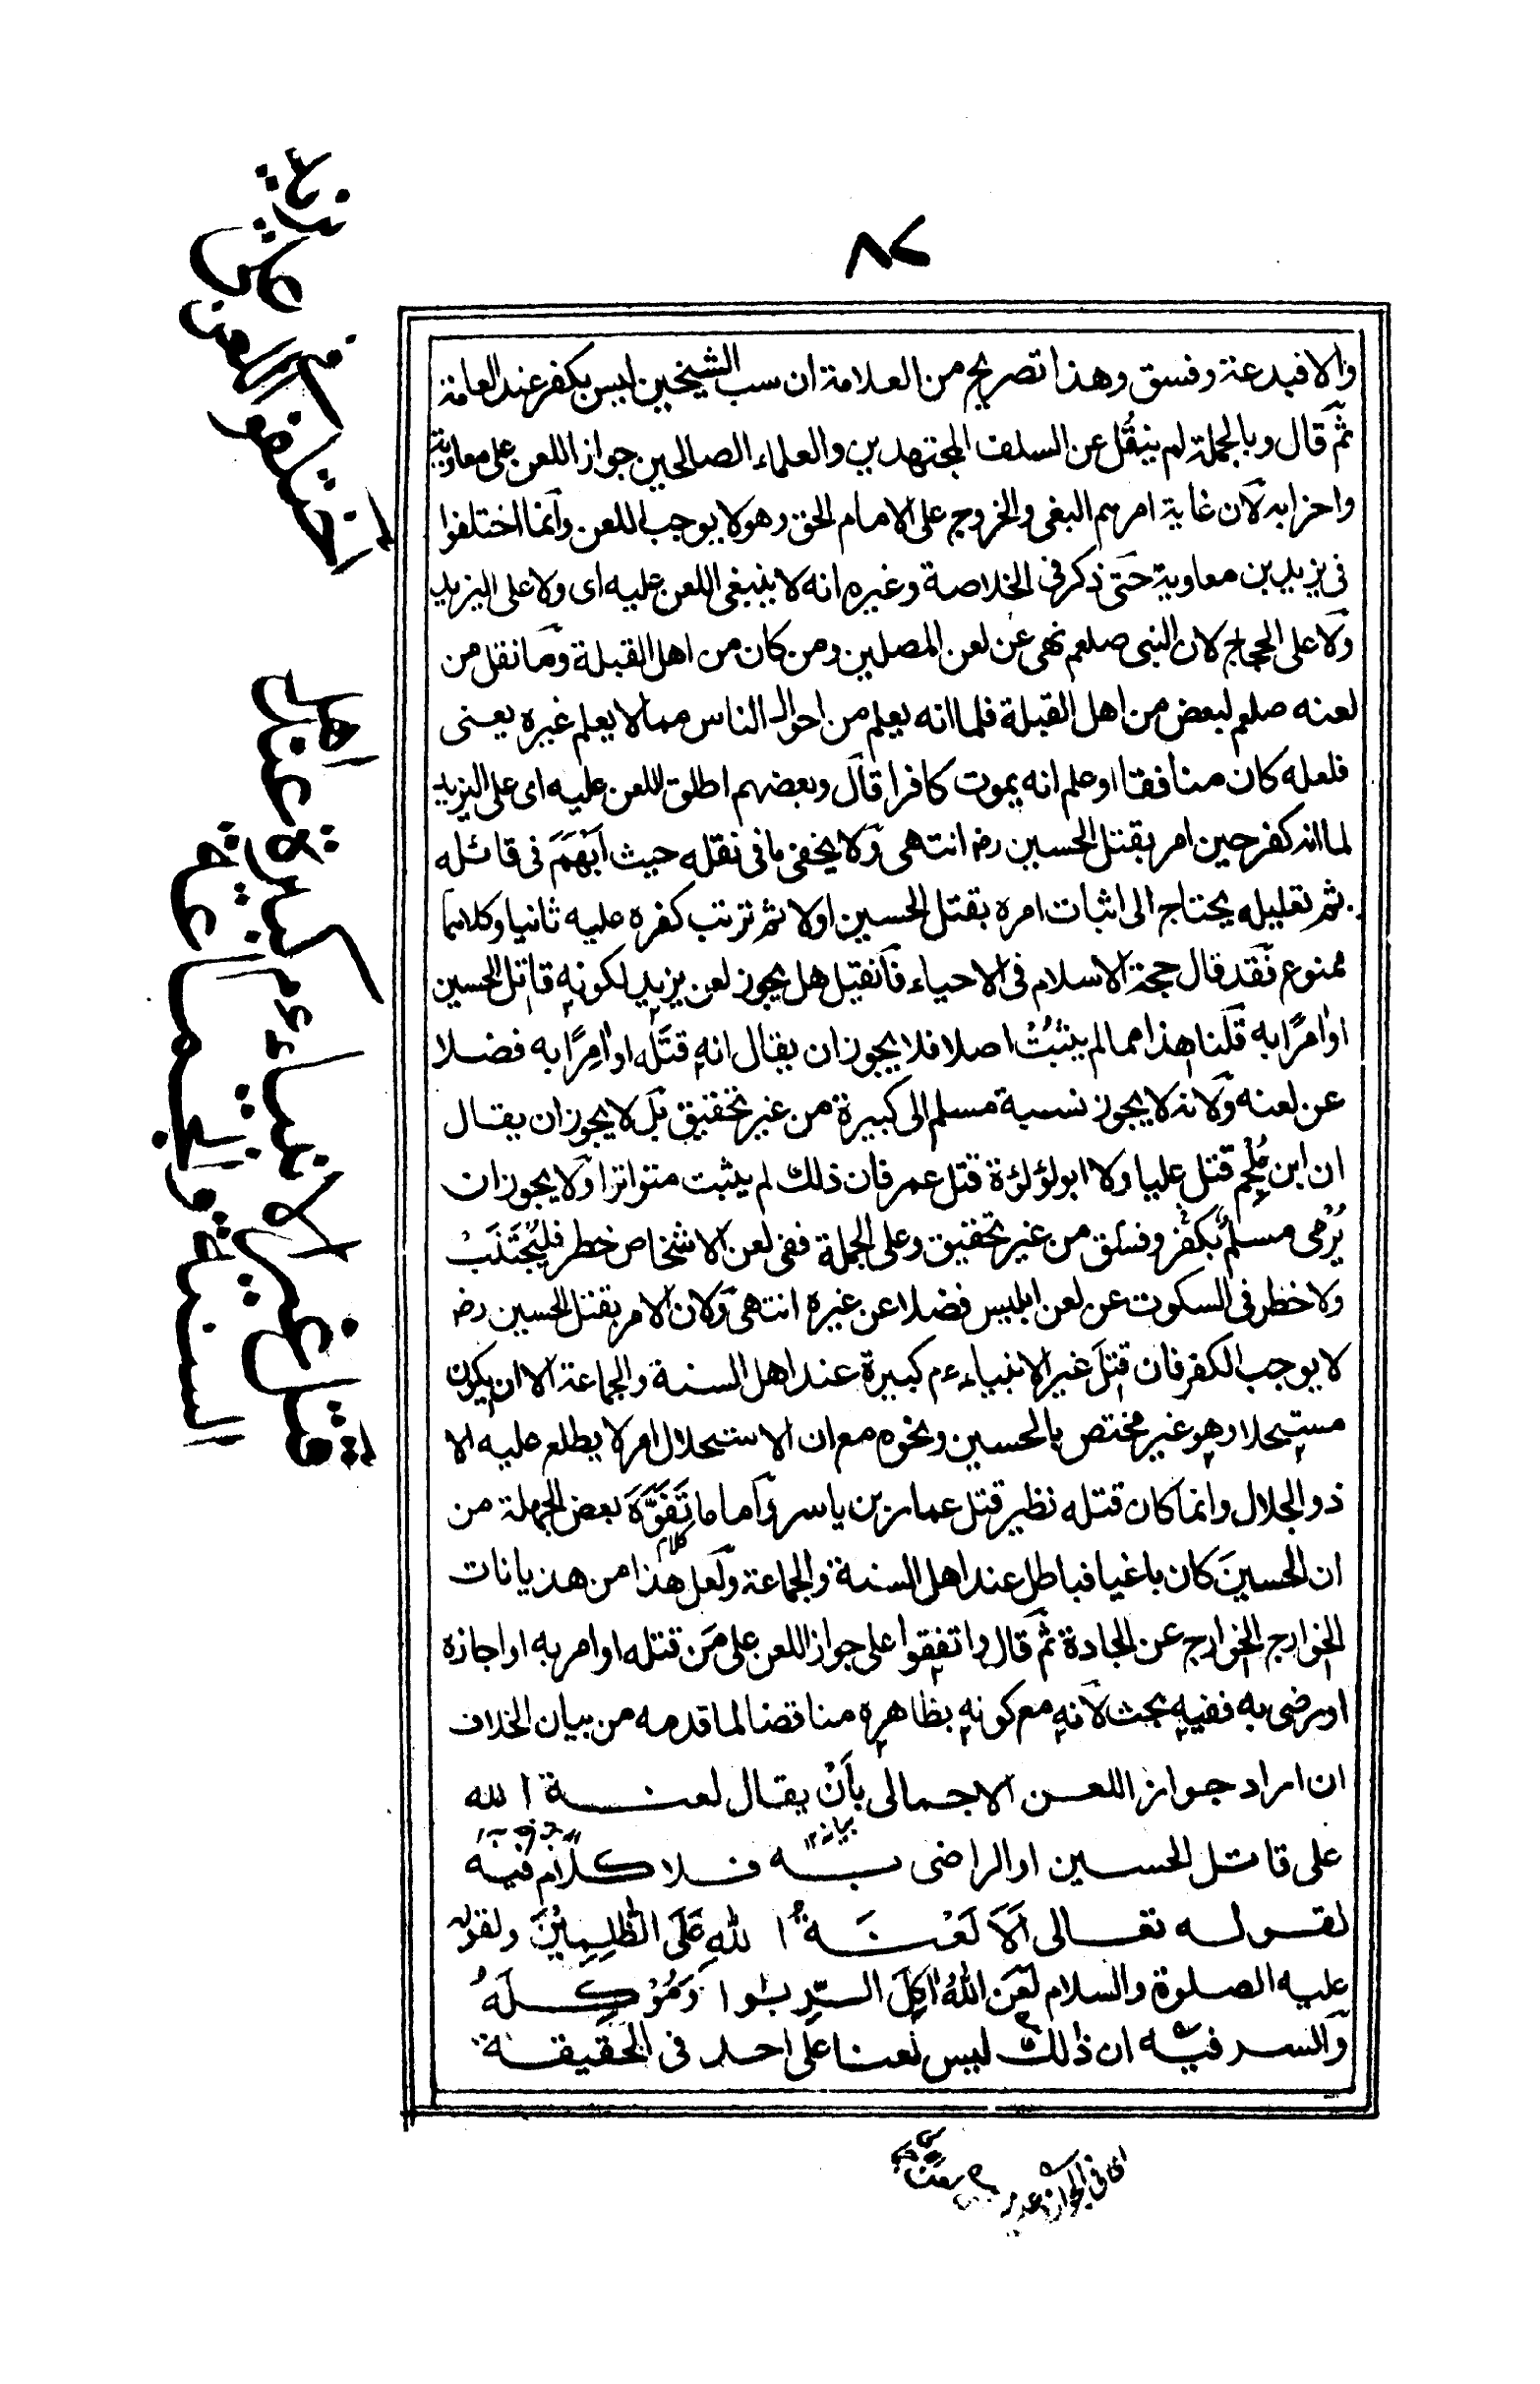 ٨٧
والا فبدعة وفسق وهذا تصريح من العلامة ان سب الشيخين ليس بكفر عند العامة
ثم قال وبالجملة لم ينقل عن السلف المجتهدين والعلماء الصالحين جواز اللعن على معاوية
واحزابه لان غاية امرهم البغى والخروج على الامام الحق وهو لا يوجب اللعن وانما اختلفوا
فى يزيد بن معاوية حتى ذكر فى الخلاصة وغيره انه لا ينبغى اللعن عليه اى ولا على اليزيد
ولا على الحجاج لان النبى صلعم نهى عن لعن المصلين ومن كان من اهل القبلة وما نقل من
لعنه صلعم لبعض من اهل القبلة فلما انه يعلم من احوال الناس مما لا يعلم غيره يعنى
فلعله كان منافقا او علم انه يموت كافرا قال وبعضهم اطلق اللعن عليه اى على اليزيد
لما انه كفر حين امر بقتل الحسين رضـ انتهى ولا يخفى ما فى نقله حيث اَبْهَمَ فى قائله
ثم تعليله يحتاج الى اثبات امره بقتل الحسين اولا ثم ترتب كفره عليه ثانيا وكلاهما
ممنوع فقد قال حجة الاسلام فى الاحياء فان قيل هل يجوز لعن يزيد لكونه قاتل الحسين
او امرًا به قلنا هذا مما لم يَثْبُتْ اصلا فلا يجوز ان يقال انه قتله او امِرًا به فضلا
عن لعنه ولانه لا يجوز نسبة مسلم الى كبيرة من غير تحقيق بل لا يجوز ان يقال
ان ابن مُلْجِم قتل عليا ولا ابو لؤلؤة قتل عمر فان ذلك لم يثبت متواترا ولا يجوز ان
يُرْمى مسلم بكفر وفسق من غير تحقيق وعلى الجملة ففى لعن الاشخاص خطر فليُجْتَنَبْ
ولا خطر فى السكوت عن لعن ابليس فضلا عن غيره انتهى ولان الامر بقتل الحسين رضـ
لا يوجب الكفر فان قتل غير الانبياء ءم كبيرة عند اهل السنة والجماعة الا ان يكون
مستحلا وهو غير مختص بالحسين ونحوه مع ان الاستحلال امر لا يطلع عليه الا
ذو الجلال وانما كان قتله نظير قتل عمار بن ياسر واما ما تَفَوَّهَ بعض الجهلة من
ان الحسينَ كان باغيا فباطل عند اهل السنة والجماعة ولعل هذا من هذيانات
كلام
الخوارج الخوارج عن الجادة ثم قال واتفقوا على جواز اللعن على من قتله او امر به او اجازه
او رضى به ففيه بحث لانه مع كونه بظاهره مناقضا لما قدمه من بيان الخلاف
ان اراد جواز اللعن الاجمالى بأنْ يقال لعنة الله
على قاتل الحسين او الراضى به فلا كلام فيه
لقوله تعالى اَلَا لَعْنَةُ اللهِ عَلَى الظّٰلِمِيْنَ ولقوله
عليه الصلوة والسلام لَعَنَ اللهُ اٰكِلَ الرِّبٰوا وَمُوْكِلَهُ
والسر فيه ان ذلك ليس لعنا على احد فى الحقيقة
اختلفوا فى اللعن على يزيد
قتل غير الانبياء ءم كبيرة عند اهل
السنة والجماعة
اى فى الجواز